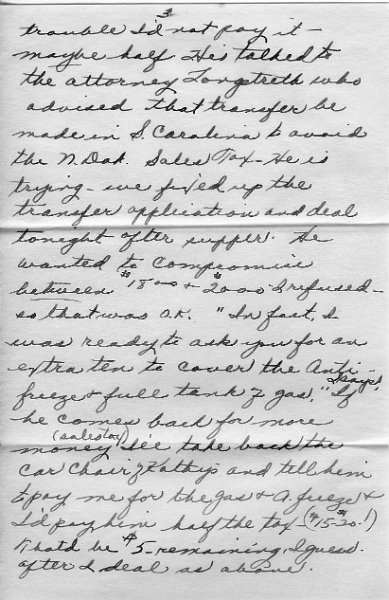 3
trouble I'd not pay it –
maybe half. He's talked to
the attorney Longstreth who
advised that transfer be
made in S. Carolina to avoid
the N. Dak. Sales Tax – He is
trying – we fixed up the
transfer application and deal
tonight after supper. He
wanted to compromise
between $18 00 & $20 00 I refused –
so that was O.K. "In fact, I
was ready to ask you for an
extra ten to cover the Anti-
freeze & full tank of gas," I says! If
he comes back for more
(sales tax)
money I'll take back the
car chair of Kathys and tell him
to pay me for the gas & A. freeze &
I'd pay him half the tax ($15-20!)
That'd be $5 – remaining, I guess.
after I deal as above.